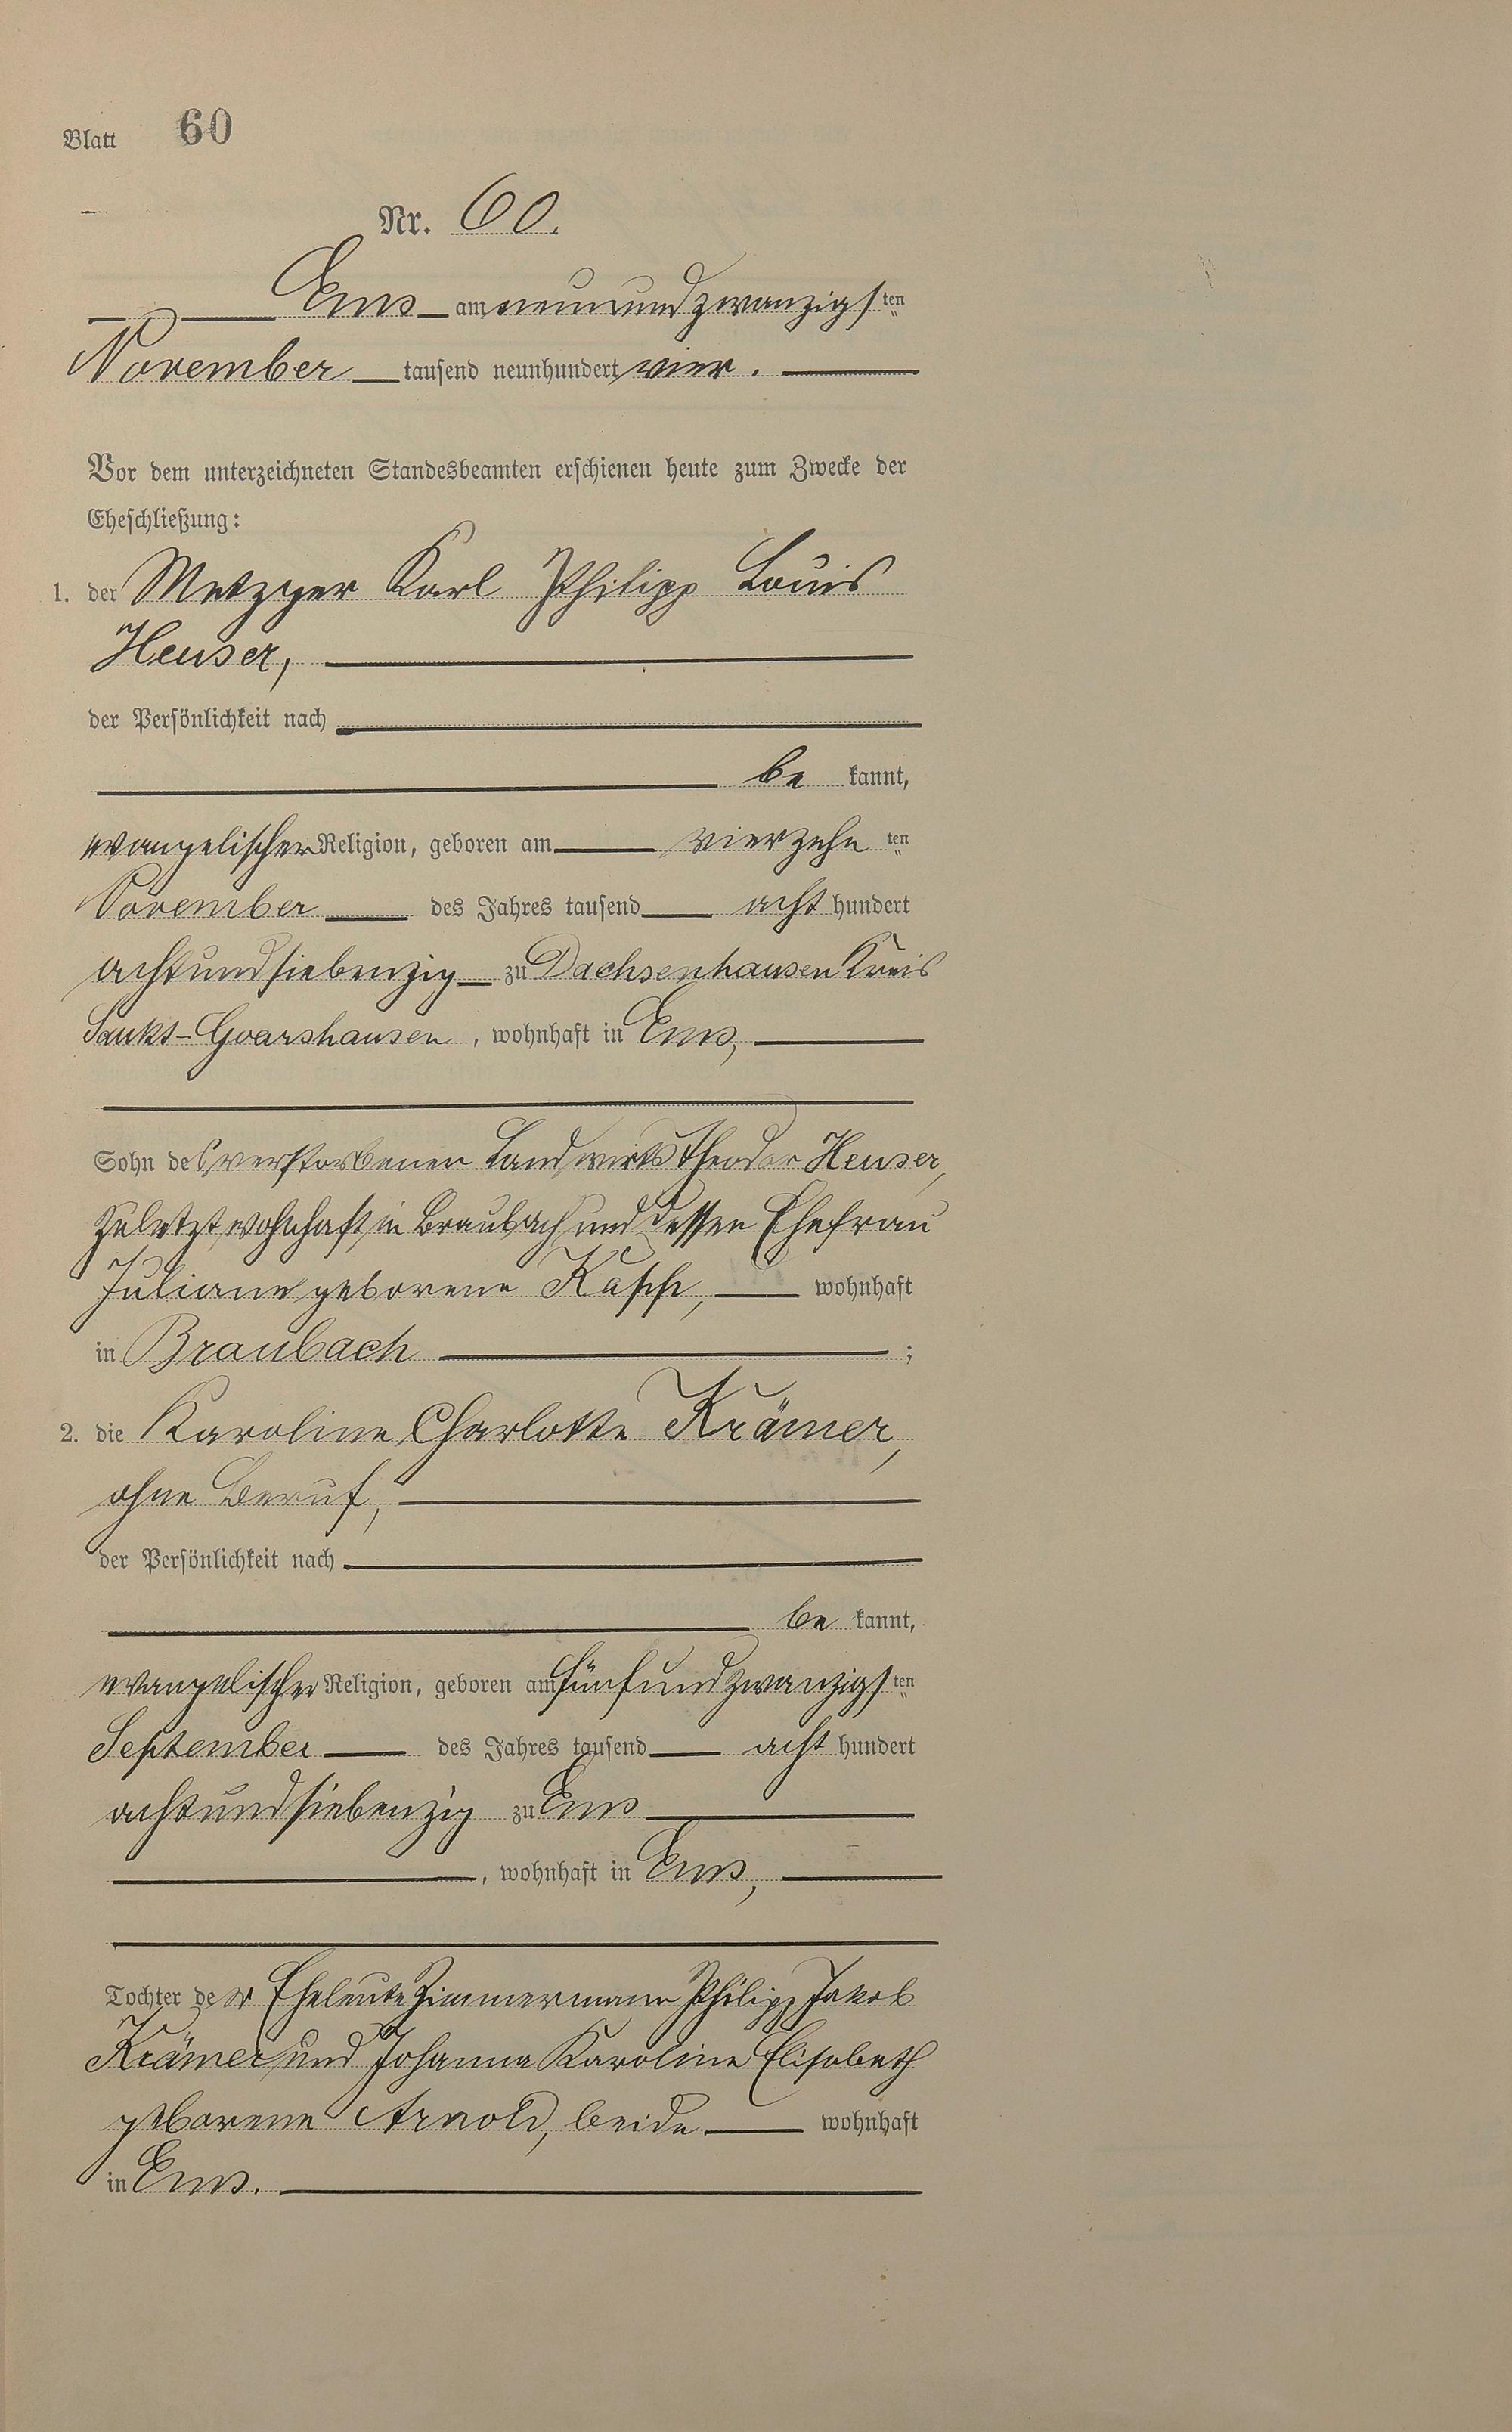 Blatt 60
Nr. 60.
Ems am neunundzwanzigsten
November tausend neunhundert vier.
Vor dem unterzeichneten Standesbeamten erschienen heute zum Zwecke der
Eheschließung:
1. der Metzger Karl Philipp Louis
Heuser,
der Persönlichkeit nach
be kannt,
evangelischer Religion, geboren am vierzehn ten
November des Jahres tausend acht hundert
achtundsiebenzig zu Dachsenhausen Kreis
Sankt-Goarshausen, wohnhaft in Ems,
Sohn des verstorbenen Landwirts Theodor Heuser,
zuletzt wohnhaft in Braubach und dessen Ehefrau
Juliane geborene Kasch, wohnhaft
in Braubach ;
2. die Karoline Charlotte Krämer,
ohne Beruf,
der Persönlichkeit nach
be kannt,
evangelischer Religion, geboren am fünfundzwanzigsten
September des Jahres tausend acht hundert
achtundsiebenzig zu Ems
, wohnhaft in Ems,
Tochter der Eheleute Zimmermann Philipp Jakob
Krämer und Johanna Karoline Elisabeth
geborene Arnold, beide wohnhaft
in Ems.